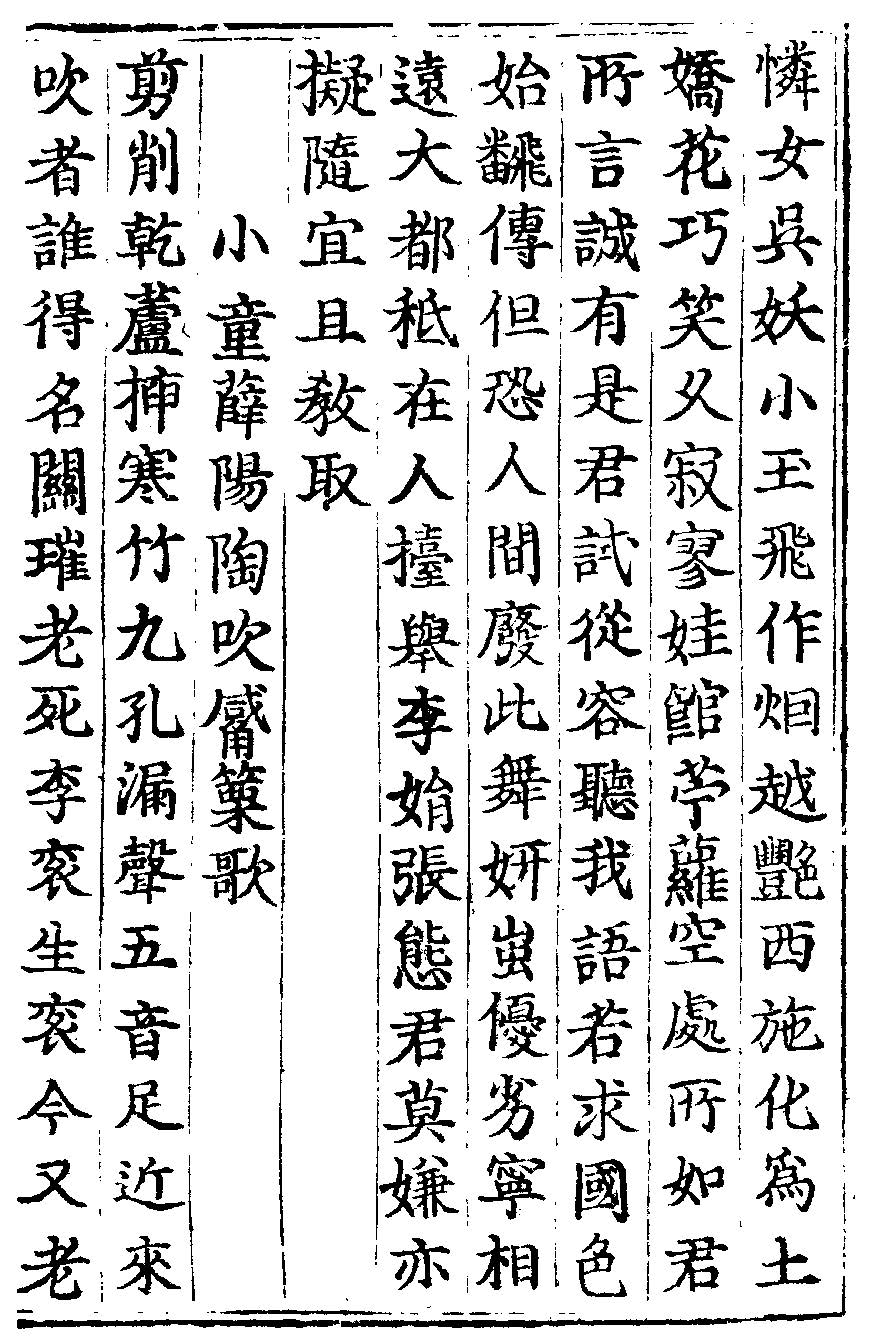 憐女吳妖小玉飛作烟越艷西施化爲土
嬌花巧笑久寂寥娃館苧蘿空處所如君
所言誠有是君試從容聽我語若求國色
始飜傳但恐人間廢此舞妍蚩優劣寧相
遠大都秪在人擡舉李娟張態君莫嫌亦
擬隨宜且教取
小童薛陽陶吹觱篥歌
剪削乾蘆插寒竹九孔漏聲五音足近來
吹者誰得名關璀老死李衮生衮今又老